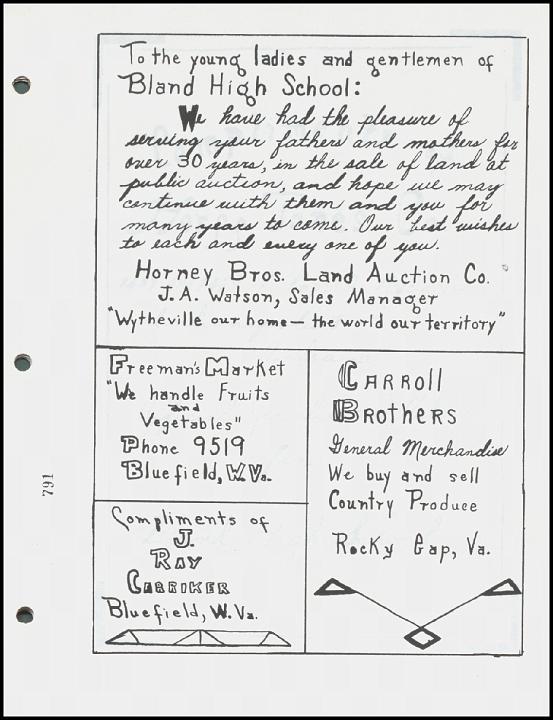 To the young ladies and gentlemen of
Bland High School:
We have had the pleasure of
serving your fathers and mothers for
over 30 years, in the sale of land at
public auction, and hope we may
continue with them and you for
many years to come. Our best wishes
to each and every one of you.
Horney Bros. Land Auction Co.
J.A. Watson, Sales Manager
"Wytheville our home — the world our territory"
Freeman's Market
"We handle Fruits
and
Vegetables"
Phone 9519
Bluefield, W. Va.
Compliments of
J.
Ray
Carriker
Bluefield, W. Va.
Carroll
Brothers
General Merchandise
We buy and sell
Country Produce
Rocky Gap, Va.
791